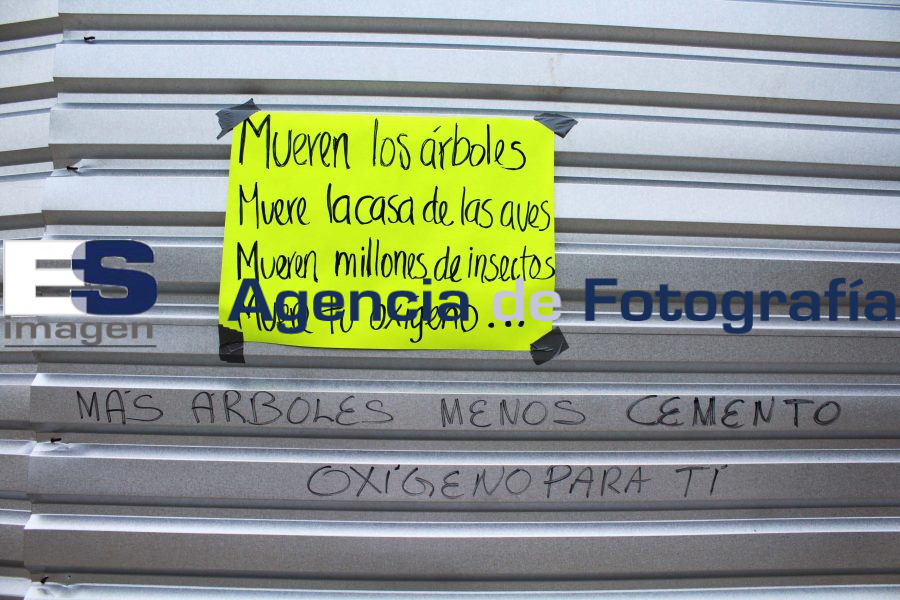 Mueren los árboles
Muere la casa de las aves
Mueren millones de insectos
Muere tu oxígeno...
ES
imagen
Agencia de Fotografía
MÁS ARBOLES MENOS CEMENTO
OXÍGENO PARA TÍ